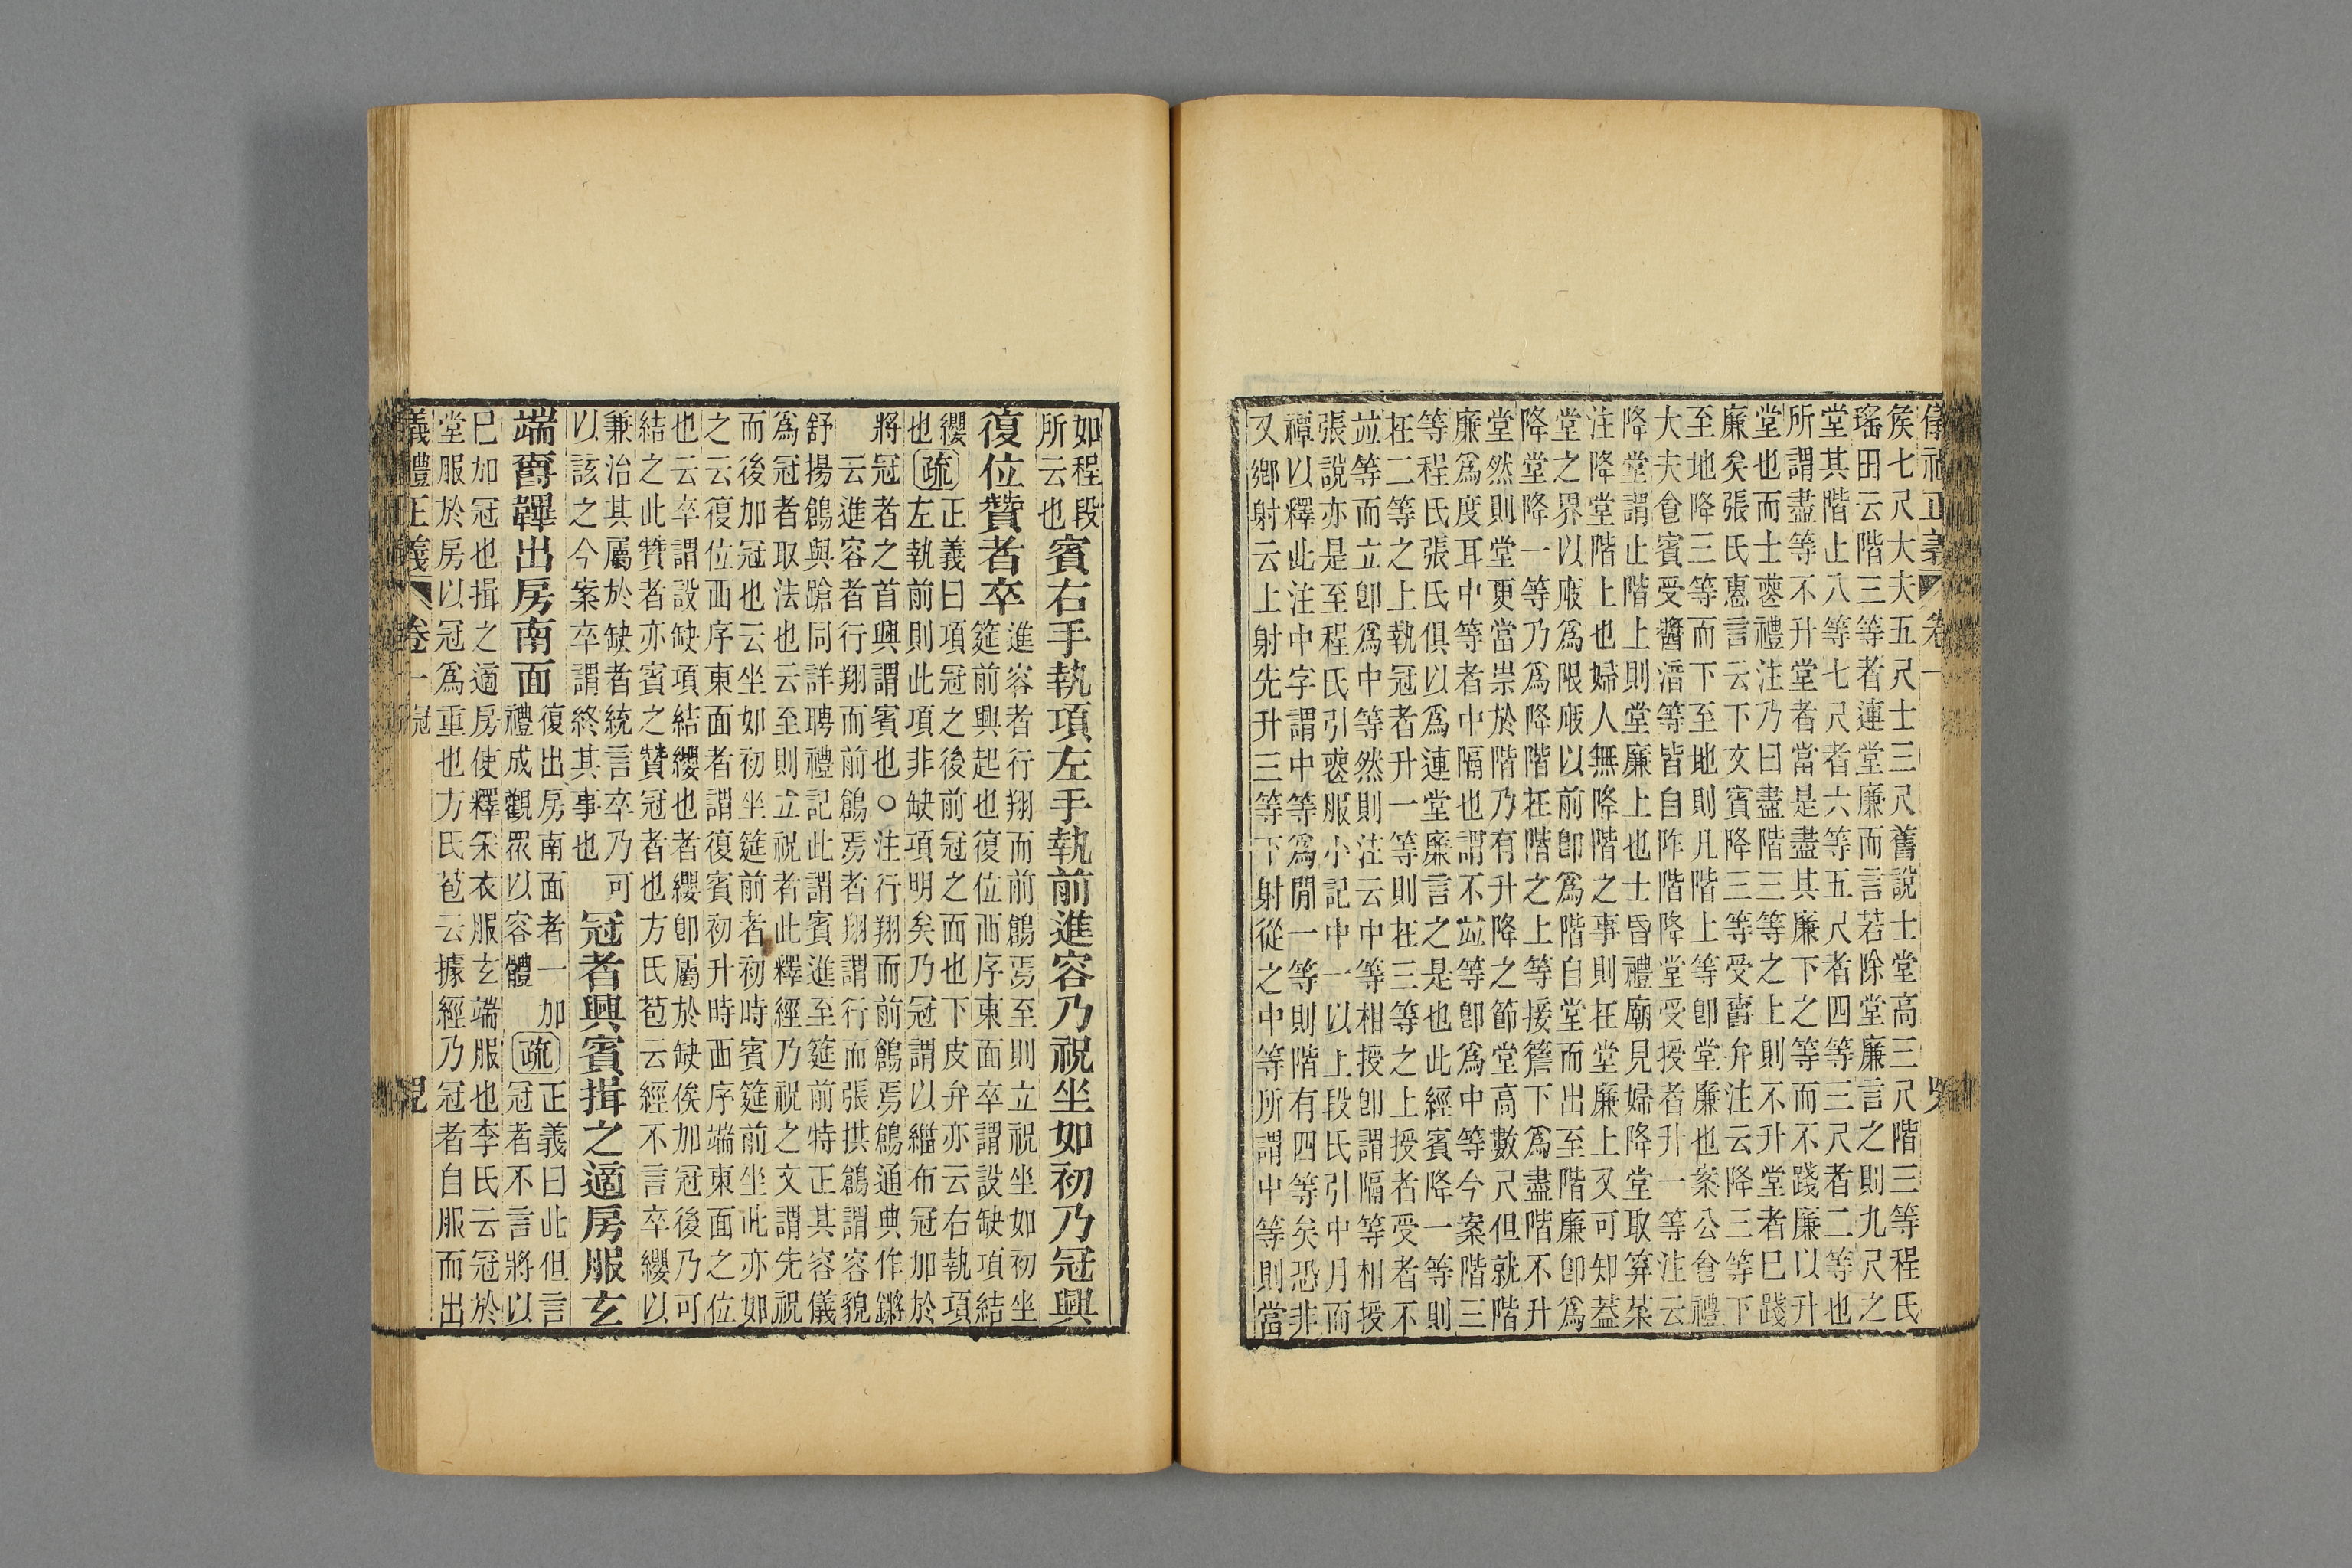 矦七尺大夫五尺士三尺舊說士堂高三尺階三等程氏
瑤田云階三等者連堂廉而言若除堂廉言之則九尺之
堂其階止八等七尺者六等五尺者四等三尺者二等也
所謂盡等不升堂者當是盡其廉下之等而不踐廉以升
堂也而士喪禮注乃曰盡階三等之上則不升堂者巳踐
廉矣張氏惠言云下文賓降三等受爵弁注云降三等下
至地降三等而下至地則凡階上等卽堂廉也案公食禮
大夫食賓受醬湇等皆自阼階降堂受授者升一等注云
降堂謂止階上則堂廉上也士昏禮廟見婦降堂取笲菜
注降堂階上也婦人無降階之事則在堂廉上又可知葢
堂之界以庪爲限庪以前卽爲階自堂而出至階廉卽爲
降堂降一等乃爲降階在階之上等接簷下爲盡階不升
堂然則堂更當崇於階乃有升降之節堂高數尺但就階
廉爲度耳中等者中隔也謂不竝等卽爲中等今案階三
等程氏張氏俱以爲連堂廉言之是也此經賓降一等則
在二等之上執冠者升一等則在三等之上授者受者不
竝等而立卽爲中等然則注云中等相授卽謂隔等相授
張說亦是至程氏引喪服小記中一以上段氏引中月而
禫以釋此注中字謂中等爲閒一等則階有四等矣恐非
又鄉射云上射先升三等下射從之中等所謂中等則當
如程段
所云也
賓右手執項左手執前進容乃祝坐如初乃冠興
復位贊者卒
進容者行翔而前鶬焉至則立祝坐如初坐
筵前興起也復位西序東面卒謂設缺項結
纓
也
疏
正義曰項冠之後前冠之面也下皮弁亦云右執項
左執前則此項非缺項明矣乃冠謂以緇布冠加於
將冠者之首興謂賓也○注行翔而前鶬焉鶬通典作鏘
云進容者行翔而前鶬焉者翔謂行而張拱鶬謂容貌
舒揚鶬與蹌同詳聘禮記此謂賓進至筵前特正其容儀
爲冠者取法也云至則立祝者此釋經乃祝之文謂先祝
而後加冠也云坐如初坐筵前者初時賓筵前坐此亦如
之云復位西序東面者謂復賓初升時西序端東面之位
也云卒謂設缺項結纓也者纓卽屬於缺俟加冠後乃可
結之此贊者亦賓之贊冠者也方氏苞云經不言卒纓以
兼治其屬於缺者統言卒乃可
以該之今案卒謂終其事也
冠者興賓揖之適房服玄
端爵韠出房南面
復出房南面者一加
禮成觀眾以容體
疏
正義曰此但言
冠者不言將以
巳加冠也揖之適房使釋采衣服玄端服也李氏云冠於
堂服於房以冠爲重也方氏苞云據經乃冠者自服而出
儀禮正義 卷一 冠